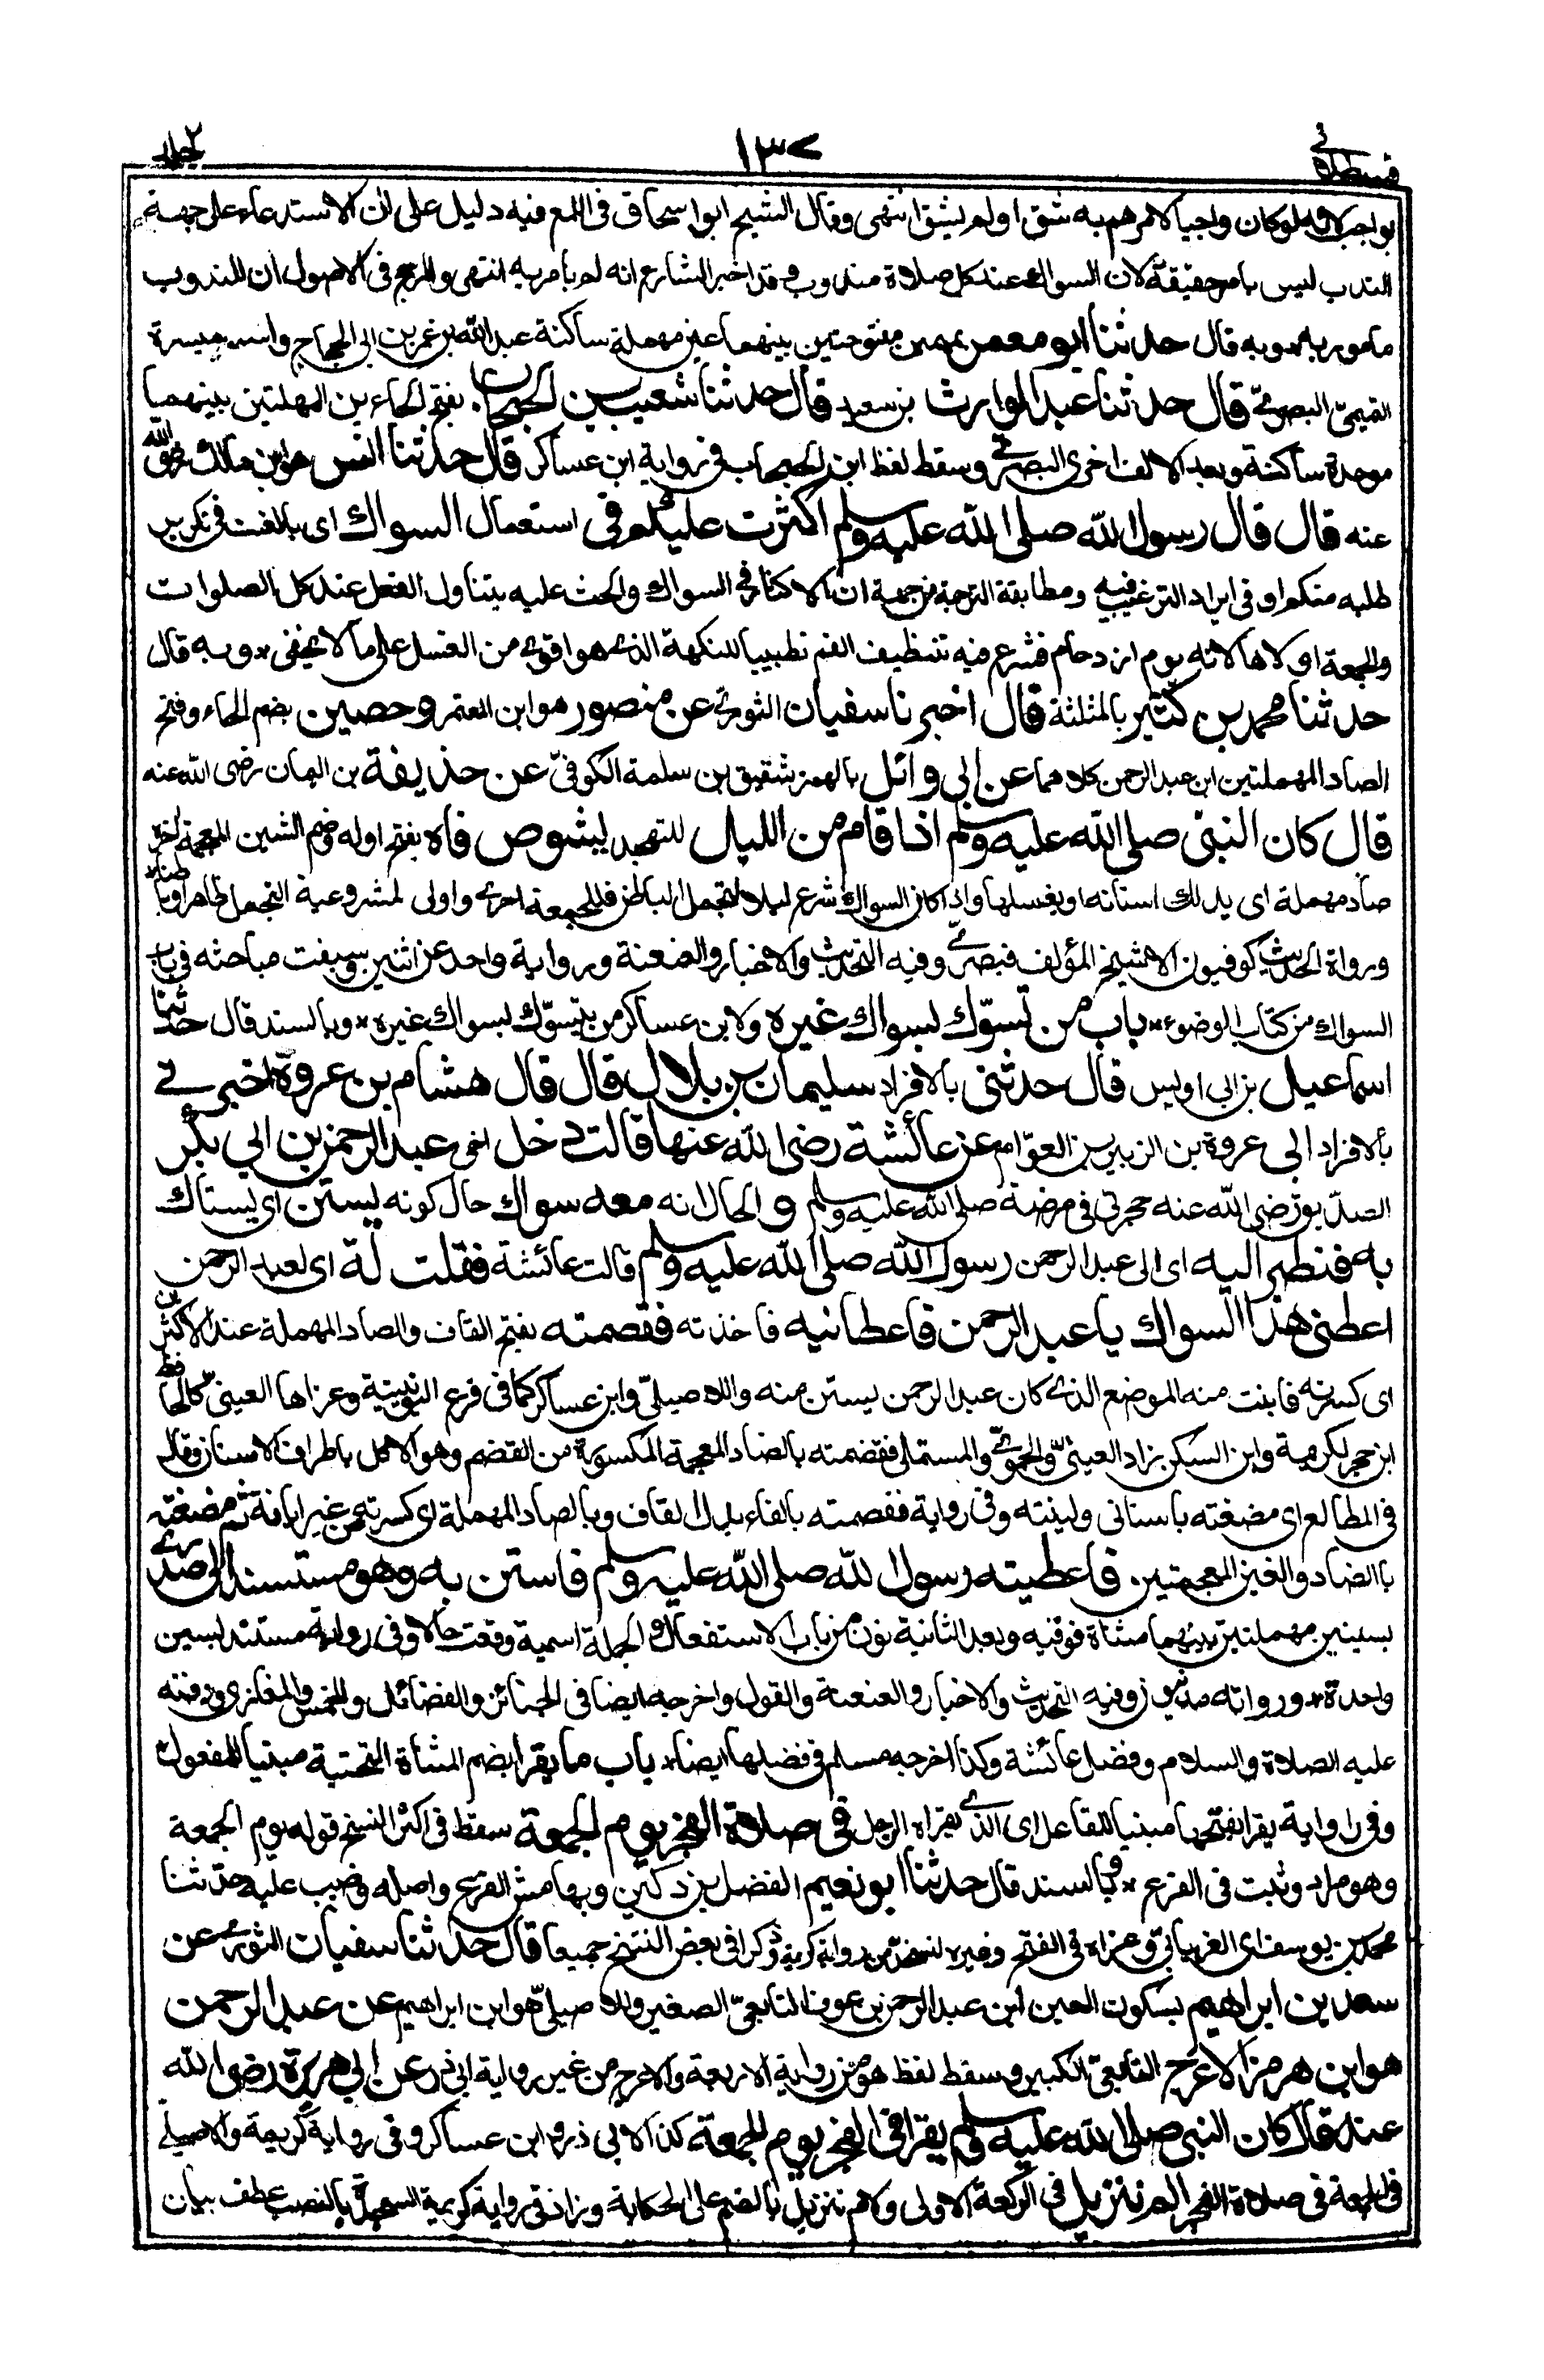 قسطلانى ١٣٧ جلد ٢
بواجب لانه لو كان واجبا لامرهم به شق او لم يشق انتهى وقال الشيخ ابو اسحاق فى اللمع فيه دليل على ان الاستدعاء على جهة
الندب ليس بامر حقيقة لان السواك عند كل صلاة مندوب وقد اخبر الشارع انه لم يامر به انتهى والمرجح فى الاصول ان المندوب
مامور به وبه قال حدثنا ابو معمر بميمين مفتوحتين بينهما عين مهملة ساكنة عبد الله بن عمر بن ابى الحجاج واسمه ميسرة
التميمىّ البصرىّ قال حدثنا عبد الوارث بن سعيد قال حدثنا شعيب بن الحبحاب بفتح الحاءين المهملتين بينهما
موحدة ساكنة وبعد الالف اخرى البصرىّ وسقط لفظ ابن الحبحاب فى رواية ابن عساكر قال حدثنا انس هو ابن مالك رضى الله
عنه قال قال رسول الله صلى الله عليه وسلم اكثرت عليكم فى استعمال السواك اى بالغت فى تكرير
طلبه منكم او فى ايراد الترغيب فيه ومطابقة الترجمة من جهة ان الاكثار فى السواك والحث عليه يتناول الفعل عند كل الصلوات
والجمعة اولاها لانه يوم ازدحام فشرع فيه تنظيف الفم تطييبا للنكهة الذى هو اقوى من الغسل على ما لا يخفى * وبه قال
حدثنا محمد بن كثير بالمثلثة قال اخبرنا سفيان الثورىّ عن منصور هو ابن المعتمر وحصين بضم الحاء وفتح
الصاد المهملتين ابن عبد الرحمن كلاهما عن ابى وائل بالهمز شقيق بن سلمة الكوفىّ عن حذيفة بن اليمان رضى الله عنه
قال كان النبى صلى الله عليه وسلم اذا قام من الليل للتهجد يشوص فاه بفتح اوله وضم الشين المعجمة اخره
صاد مهملة اى يدلك اسنانه او يغسلها واذا كان السواك شرع ليلا لتجمل الباطن فللجمعة احرى واولى لمشروعية التجمل ظاهرا وباطنا *
ورواة الحديث كوفيون الا شيخ المؤلف فبصرىّ وفيه التحديث والاخبار والعنعنة ورواية واحد عن اثنين وسبقت مباحثه فى باب
السواك من كتاب الوضوء * باب من تسوّك بسواك غيره ولابن عساكر من يتسوّك بسواك غيره * وبالسند قال حدثنا
اسماعيل بن ابى اويس قال حدثنى بالافراد سليمان بن بلال قال قال هشام بن عروة اخبرنى
بالافراد ابى عروة بن الزبير بن العوّام عن عائشة رضى الله عنها قالت دخل اخى عبد الرحمن بن ابى بكر
الصديق رضى الله عنه حجرتى فى مرضه صلى الله عليه وسلم و الحال انه معه سواك حال كونه يستن اى يستاك
به فنظر اليه اى الى عبد الرحمن رسول الله صلى الله عليه وسلم قالت عائشة فقلت له اى لعبد الرحمن
اعطنى هذا السواك يا عبد الرحمن فاعطانيه فاخذته فقصمته بفتح القاف والصاد المهملة عند الاكثرين
اى كسرته فابنت منه الموضع الذى كان عبد الرحمن يستن منه وللاصيلىّ وابن عساكر كما فى فرع اليونينية وعزاها العينىّ كالحافظ
ابن حجر لكريمة وابن السكن زاد العينىّ والحموىّ والمستملى فقضمته بالضاد المعجمة المكسورة من القضم وهو الاكل باطراف الاسنان وقال
فى المطالع اى مضغته باسنانى ولينته وفى رواية ففصمته بالفاء بدل القاف وبالصاد المهملة اى كسرته من غير ابانة ثم مضغته
بالضاد والغين المعجمتين فاعطيته رسول الله صلى الله عليه وسلم فاستن به وهو مستسند الى صدرى
بسينين مهملتين بينهما مثناة فوقيه وبعد الثانية نون من باب الاستفعال والجملة اسمية وقعت حالا وفى رواية مستند بسين
واحدة * ورواته مدنيون وفيه التحديث والاخبار والعنعنة والقول واخرجه ايضا فى الجنائز والفضائل والخمس والمغازى ومرضه
عليه الصلاة والسلام وفضل عائشة وكذا اخرجه مسلم فى فضلها ايضا * باب ما يقرا بضم المثناة التحتية مبنيا للمفعول
وفى رواية يقرا بفتحها مبنيا للفاعل اى الذى يقراه الرجل فى صلاة الفجر يوم الجمعة سقط فى اكثر النسخ قوله يوم الجمعة
وهو مراد وثبت فى الفرع * وبالسند قال حدثنا ابو نعيم الفضل بن دكين وبهامش الفرع واصله وضبب عليه حدثنا
محمد بن يوسف اى الفريابىّ وعزاه فى الفتح وغيره لنسخة من رواية كريمة وذكرا فى بعض النسخ جميعا قال حدثنا سفيان الثورىّ عن
سعد بن ابراهيم بسكون العين ابن عبد الرحمن بن عوف التابعىّ الصغير وللاصيلىّ هو ابن ابراهيم عن عبد الرحمن
هو ابن هرمز الاعرج التابعىّ الكبير وسقط لفظ هو من رواية الاربعة والاعرج من غير رواية ابى ذر عن ابى هريرة رضى الله
عنه قال كان النبى صلى الله عليه وسلم يقرا فى الفجر يوم الجمعة كذا لابى ذر وابن عساكر وفى رواية كريمة والاصيلى
فى الجمعة فى صلاة الفجر الم تنزيل فى الركعة الاولى ولام تنزيل بالضم على الحكاية وزاد فى رواية كريمة السجدة بالنصب عطف بيان